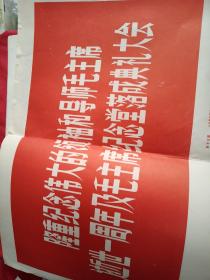 隆重纪念伟大的领袖和导师毛主席
逝世一周年及毛主席纪念堂落成典礼大会